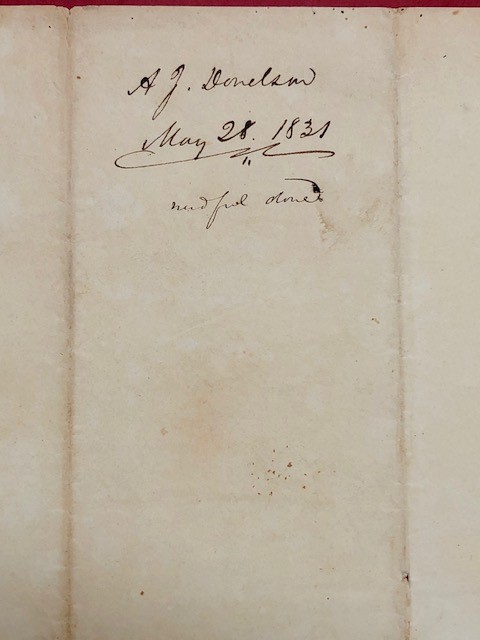 A J. Donelson
May 28. 1831
needful done